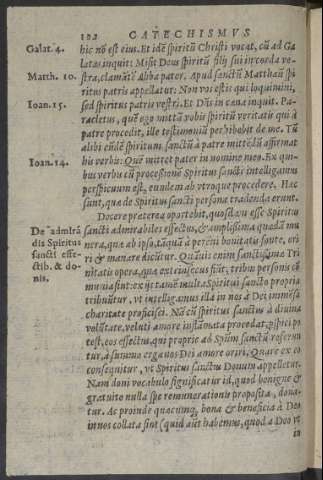 102 CATECHISMVS
Galat. 4. hic nō est eius. Et idē spiritū Christi vocat, cū ad Ga
latas inquit: Misit Deus spiritū filij sui in corda ve-
Matth. 10. stra, clamātē Abba pater. Apud sanctū Matthæū spi
ritus patris appellatur: Non vos estis qui loquimini,
Ioan. 15. sed spiritus patris vestri. Et Dñs in cœna inquit. Pa-
racletus, quē ego mittā vobis spiritū veritatis qui à
patre procedit, ille testimoniū perhibebit de me. Tū
alibi eundē spiritum sanctū à patre mittēdū affirmat
Ioan. 14. his verbis: Quē mittet pater in nomine meo. Ex qui-
bus verbis cū processionē Spiritus sancti intelligamus
perspicuum est, eundem ab vtroque procedere. Hæc
sunt, quæ de Spiritus sancti persona tradenda erunt.
Docere præterea oportebit, quosdam esse Spiritus
De admirā sancti admirabiles effectus, & amplissima quædā mu
dis Spiritus nera, quæ ab ipso, tāquā à perēni bonitatis fonte, ori
sancti effe- ri & manare dicūtur. Quāuis enim sanctissimæ Tri
ctib. & do- nitatis opera, quæ extrinsecus fiūt, tribus personis cō
nis. munia sint: ex ijs tamē multa Spiritui sancto propria
tribuūtur, vt intelligamus illa in nos à Dei immēsa
charitate proficisci. Nā cū spiritus sanctus à diuina
volūtate, veluti amore inflāmata procedat, pspici po
test, eos effectus, qui propriè ad Spūm sanctū referun
tur, à summo erga nos Dei amore oriri. Quare ex eo
consequitur, vt Spiritus sanctus Donum appelletur.
Nam doni vocabulo significatur id, quod benignè &
gratuitò nulla spe remunerationis proposita, dona-
tur. Ac proinde quæcunq; bona & beneficia à Deo
in nos collata sint (quid aūt habemus, quod a Deo vt
in